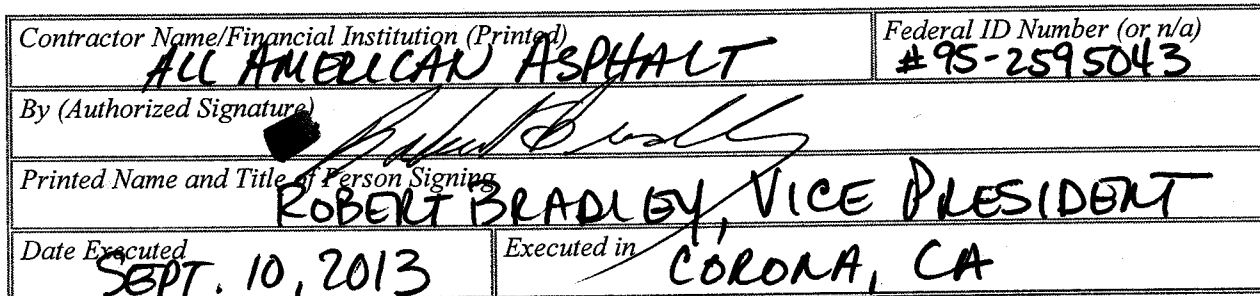 Contractor Name/Financial Institution (Printed)
ALL AMERICAN ASPHALT
Federal ID Number (or n/a)
#95-2595043
By (Authorized Signature)
Robert Bradley
Printed Name and Title of Person Signing
ROBERT BRADLEY, VICE PRESIDENT
Date Executed
SEPT. 10, 2013
Executed in
CORONA, CA